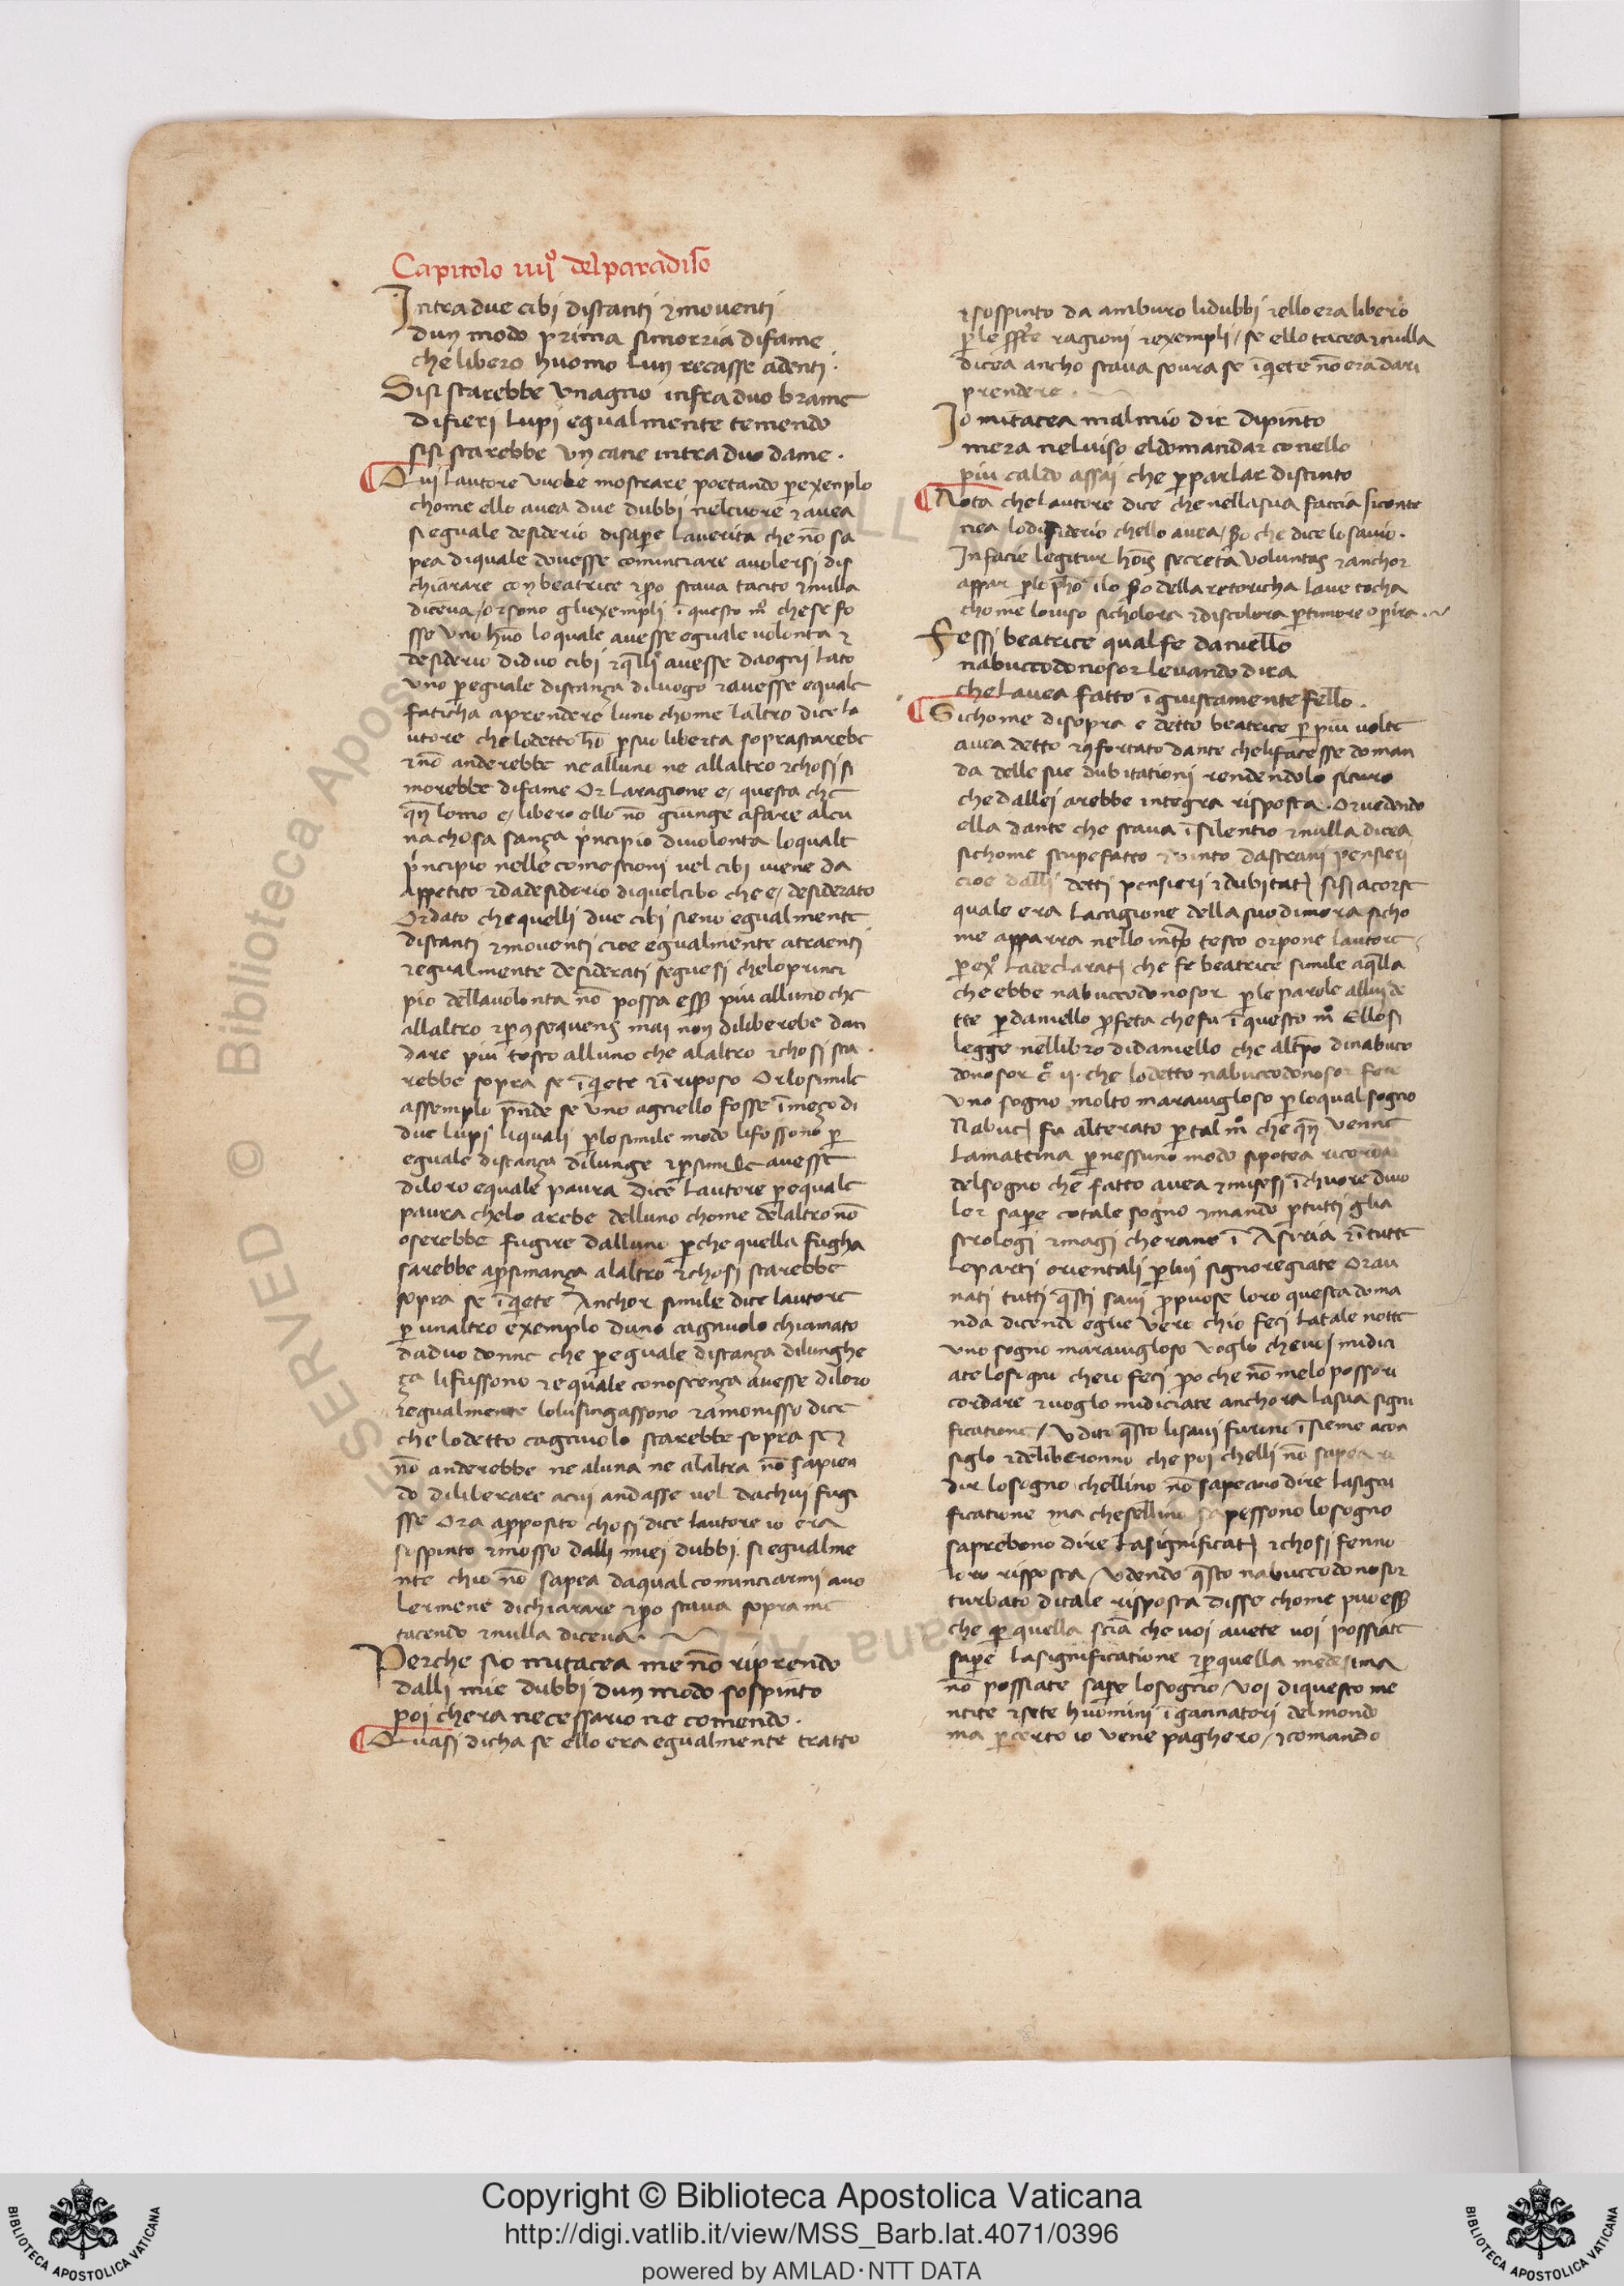 Capitolo iiijº del paradiso
Intra due cibi distanti ⁊ moventi
dun modo prima simorria difame
che libero huomo lun recasse adenti.
Sisi starebbe vnagno infra duo brame
difieri lupi egualmente temendo
sisi starebbe vn cane intra duo dame.
Qui lautore vuole mostrare poetando ꝑexenplo
chome ello avea due dubbi nelcuore ⁊ avea
si eguale desiderio disaꝑe laverita che nō sa
pea diquale dovesse cominciare avolersi dis
chiarare con beatrice ⁊ ꝑo stava tacito ⁊ nulla
diceva / or sono gliexempli ī questo mº che se fo
sse vno hūo lo quale avesse eguale volonta ⁊
desiderio diduo cibi ⁊ qlli avesse daogni lato
vno ꝑ eguale distanza diluogo ⁊ avesse equale
faticha aprendere luno chome laltro dice la
utore che lodetto hō ꝑ suo liberta soprastarebe
⁊ nō anderebbe ne alluno ne allaltro ⁊ chosi si
morebbe difame Or laragione e / questa che
qn lomo e / libero ello nō giunge afare alcu
na chosa sanza principio divolonta loquale
principio nelle comestioni vel cibi viene da
appetito ⁊ dadesiderio diquelcibo che e / desiderato
Or dato che quelli due cibi sieno egualmente
distanti ⁊ moventi cioe egualmente atraenti
⁊ egualmente desiderati seguesi chelo princi
pio dellavolonta nō possa ess piu alluno che
allaltro ⁊ ꝑ ꝯsequens mai non diliberebe dan
dare piu tosto alluno che alaltro ⁊ chosi sta
rebbe sopra se ī qiete ⁊ ī riposo Or losimile
assemplo pnde se vno agnello fosse ī mezo di
due lupi liquali ꝑ lo simile modo lifossono ꝑ
eguale distanza dilunge ⁊ ꝑ simile avesse
diloro equale paura dice lautore ꝑ equale
paura chelo arebe delluno chome delaltro nō
oserebbe fugire dalluno ꝑche quella fugha
sarebbe aꝑsimanza alaltro ⁊ chosi starebbe
sopra se ī qiete Anchor simile dice lautore
ꝑ unaltro exemplo duno cagnuolo chiamato
daduo donne che ꝑ eguale distanza dilunghe
za lifussono ⁊ equale conoscenza avesse diloro
⁊ egualmente lolusingassono ⁊ amonisso dice
che lodetto cagnuolo starebbe sopra se ⁊
nō anderebbe ne aluna ne alaltra nō sapien
do diliberare acui andasse vel dachui fugi
sse Ora apposito chosi dice lautore io era
sispinto ⁊ mosso dalli miei dubbi si egualme
nte chio nō sapea daqual cominciarmi avo
lermene dichiarare ⁊ ꝑo stava sopra me
tacendo ⁊ nulla diceva.
Perche sio mitacea me nō riprendo
dalli mie dubbi dun modo sospinto
poi chera necessario ne comendo.
Quasi dicha se ello era egualmente tratto
⁊ sospinto da amburo lidubbi ⁊ ello era libero
ꝑ le ragioni ⁊ exempli / se ello tacea ⁊ nulla
dicea ancho stava sovra se ī qiete nō era dari
prendere
Io mitacea malmio dir dipinto
mera nelviso eldomandar conello
piu caldo assai che ꝑ parlar distinto
Nota chel autore dice che nella sua faccia siconte
nea lodisiderio chello avea / che dice lo savio.
In facie legitur hoīs secreta voluntas ⁊ anchor
appar ꝑ lo della retoricha lave tocha
chome loviso sicholora ⁊ discolora ꝑ timore o ꝑ ira.
Fessi beatrice qual fe daniello
nabuccodonosor levando dira
che lavea fatto ī giustamente fello.
Sichome disopra e detto beatrice ꝑ piu volte
avea detto ⁊ ꝯfortato dante chelifacesse doman
da delle sue dubitationi rendendolo sicuro
che dallei arebbe integra risposta. Or vedendo
ella dante che stava ī silentio ⁊ nulla dicea
sichome stupefatto ⁊ vinto dastrani pensieri
cioe dalli detti pensieri ⁊ dubitat sisi acorse
quale era lacagione della suo dimora sicho
me apparra nello testo or pone lautore
ꝑ exº ladeclarat che fe beatrice simile aqlla
che ebbe nabuccodonosor ꝑ le parole allui de
tte ꝑ daniello ꝓfeta che fu ī questo mº Ellosi
legge nellibro didaniello che altpo dinabuco
donosor cº ii. che lodetto nabuccodonosor fece
vno sogno molto maraviglioso ꝑ loqual sogno
Nabuc fu alterato ꝑ tal mº che qn venne
lamattina ꝑ nessuno modo sipotea ricorda
delsogno che fatto avea ⁊ misesi ī chuore divo
ler saꝑe cotale sogno ⁊ mando ꝑ tutti glia
strologi ⁊ magi cherano ī Asiria ⁊ ī tutte
leparti orientali ꝑ lui signoregiate Orau
nati tutti qsti savi ꝓpuose loro questa doma
nda dicendo eglie vero chio feci latale notte
vno sogno maraviglioso voglo che voi midici
ate losognio cheio feci ꝑo che nō melo posso ri
cordare ⁊ voglo midiciate anchora lasua signi
ficatione / Vdito qsto lisavi furono ī sieme acon
siglo ⁊ deliberonno che poi chelli nō sapea ri
dir losogno chellino nō sapeano dire lasigni
ficatione ma chesellino sapessono losogno
saprebono dire lasignificat ⁊ chosi fenno
loro risposta Vdendo qsto nabuccodonosor
turbato ditale risposta disse chome puo ess
che ꝑ quella sciā che voi avete voi possiate
saꝑe lasignificatione ⁊ ꝑ quella medesima
nō possiate saꝑe losogno / Voi diquesto me
ntite ⁊ sete huomini ī gannatori del mondo
ma ꝑ certo io vene paghero / ⁊ comando
Copyright © Biblioteca Apostolica Vaticana
http://digi.vatlib.it/view/MSS_Barb.lat.4071/0396
powered by AMLAD·NTT DATA
BIBLIOTECA APOSTOLICA VATICANA
BIBLIOTECA APOSTOLICA VATICANA